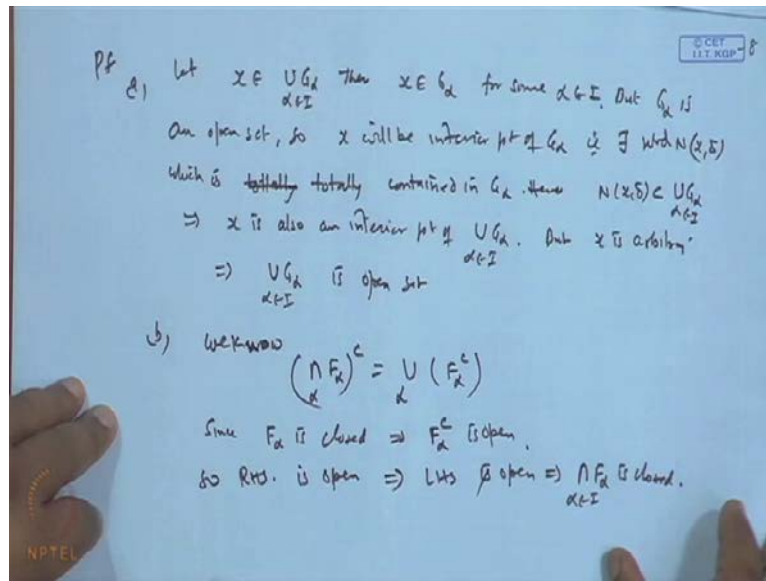 © CET
I.I.T. KGP
8
Pf
a) Let x ∈ ∪ Gα Then x ∈ Gα for some α ∈ I. But Gα is
α∈I
an open set, so x will be interior pt of Gα ie ∃ nbd N(x,δ)
which is totally totally contained in Gα. Hence N(x,δ) ⊂ ∪ Gα
α∈I
⇒ x is also an interior pt of ∪ Gα. But x is arbitrary
α∈I
⇒ ∪ Gα is open set
α∈I
b) We know
(∩ Fα)ᶜ = ∪ (Fαᶜ)
α α
Since Fα is closed ⇒ Fαᶜ is open.
So RHS. is open ⇒ LHS is open ⇒ ∩ Fα is closed.
α∈I
NPTEL